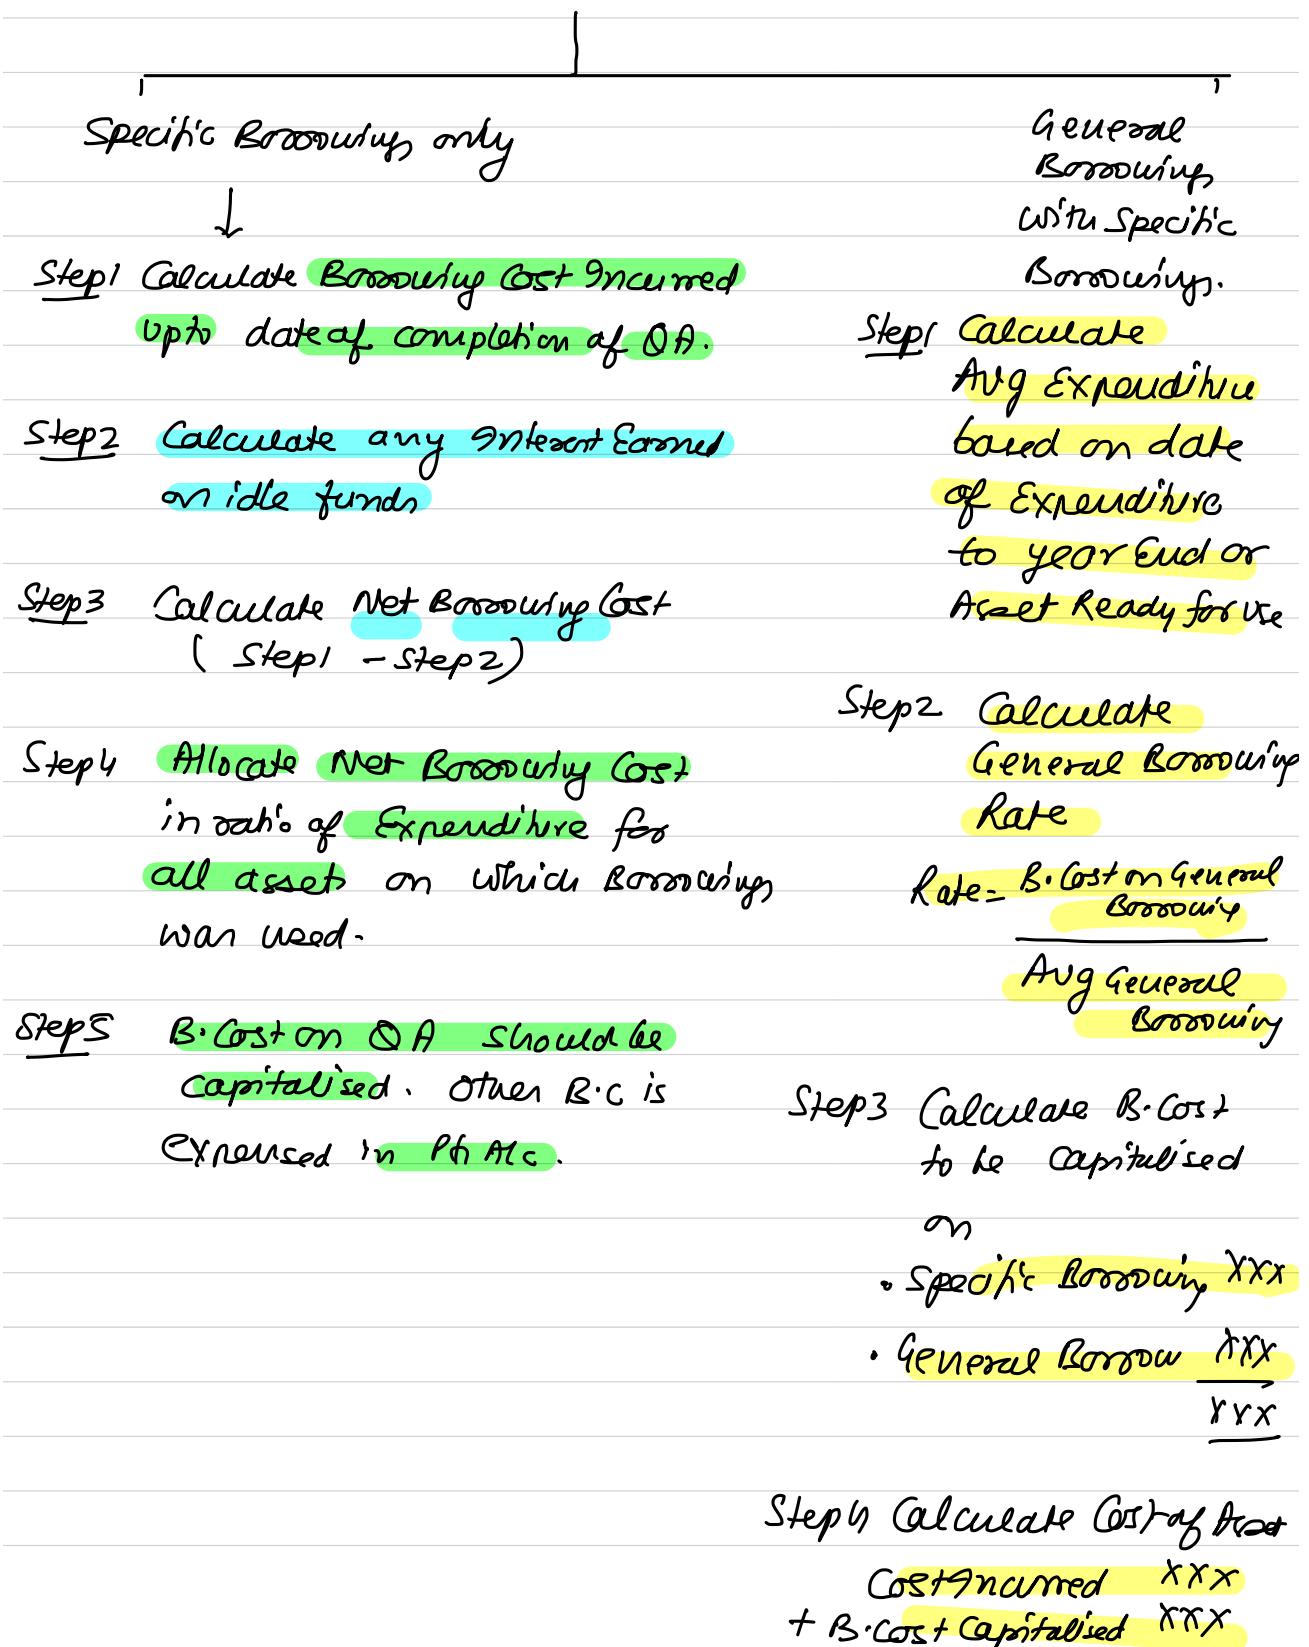 Specific Borrowings only
↓
Step1 Calculate Borrowing Cost Incurred
upto date of completion of QA.
Step2 Calculate any Interest Earned
on idle funds
Step3 Calculate Net Borrowing Cost
( Step1 - Step2)
Step4 Allocate Net Borrowing Cost
in ratio of Expenditure for
all assets on which Borrowings
was used.
Step5 B.Cost on QA should be
Capitalised. Other B.C is
expensed in P&L A/c.
General
Borrowings
with Specific
Borrowings.
Step1 Calculate
Avg Expenditure
based on date
of Expenditure
to year End or
Asset Ready for use
Step2 Calculate
General Borrowing
Rate
Rate = B.Cost on General
Borrowing
Avg General
Borrowing
Step3 Calculate B.Cost
to be Capitalised
on
• Specific Borrowing XXX
• General Borrow XXX
XXX
Step4 Calculate Cost of Asset
Cost Incurred XXX
+ B.Cost Capitalised XXX